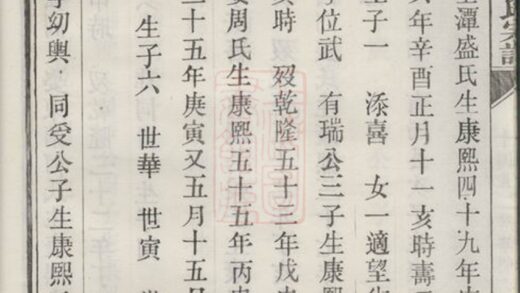 氏宗譜
潭盛氏生康熙四十九年
年辛酉正月十一亥時壽
生子一 添喜 女一適望
字位武 有瑞公三子生康熙
亥時 歿乾隆五十三年戊申
周氏生康熙五十五年丙申
三十五年庚寅又五月十五日
生子六 世華 世寅
字幼輿 同受公子生康熙